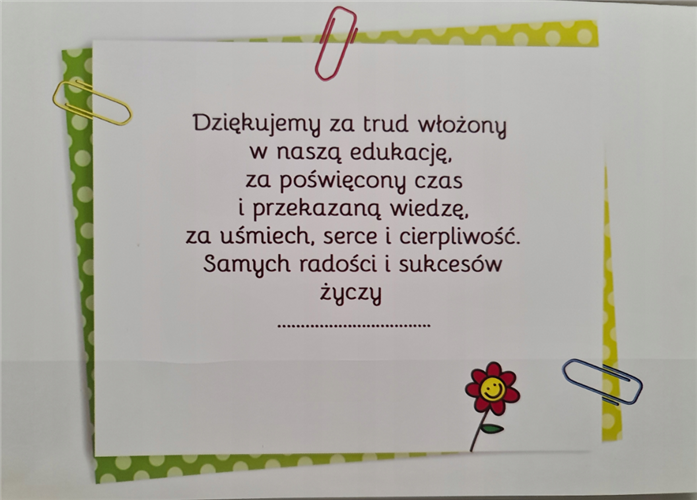 Dziękujemy za trud włożony
w naszą edukację,
za poświęcony czas
i przekazaną wiedzę,
za uśmiech, serce i cierpliwość.
Samych radości i sukcesów
życzy
..................................